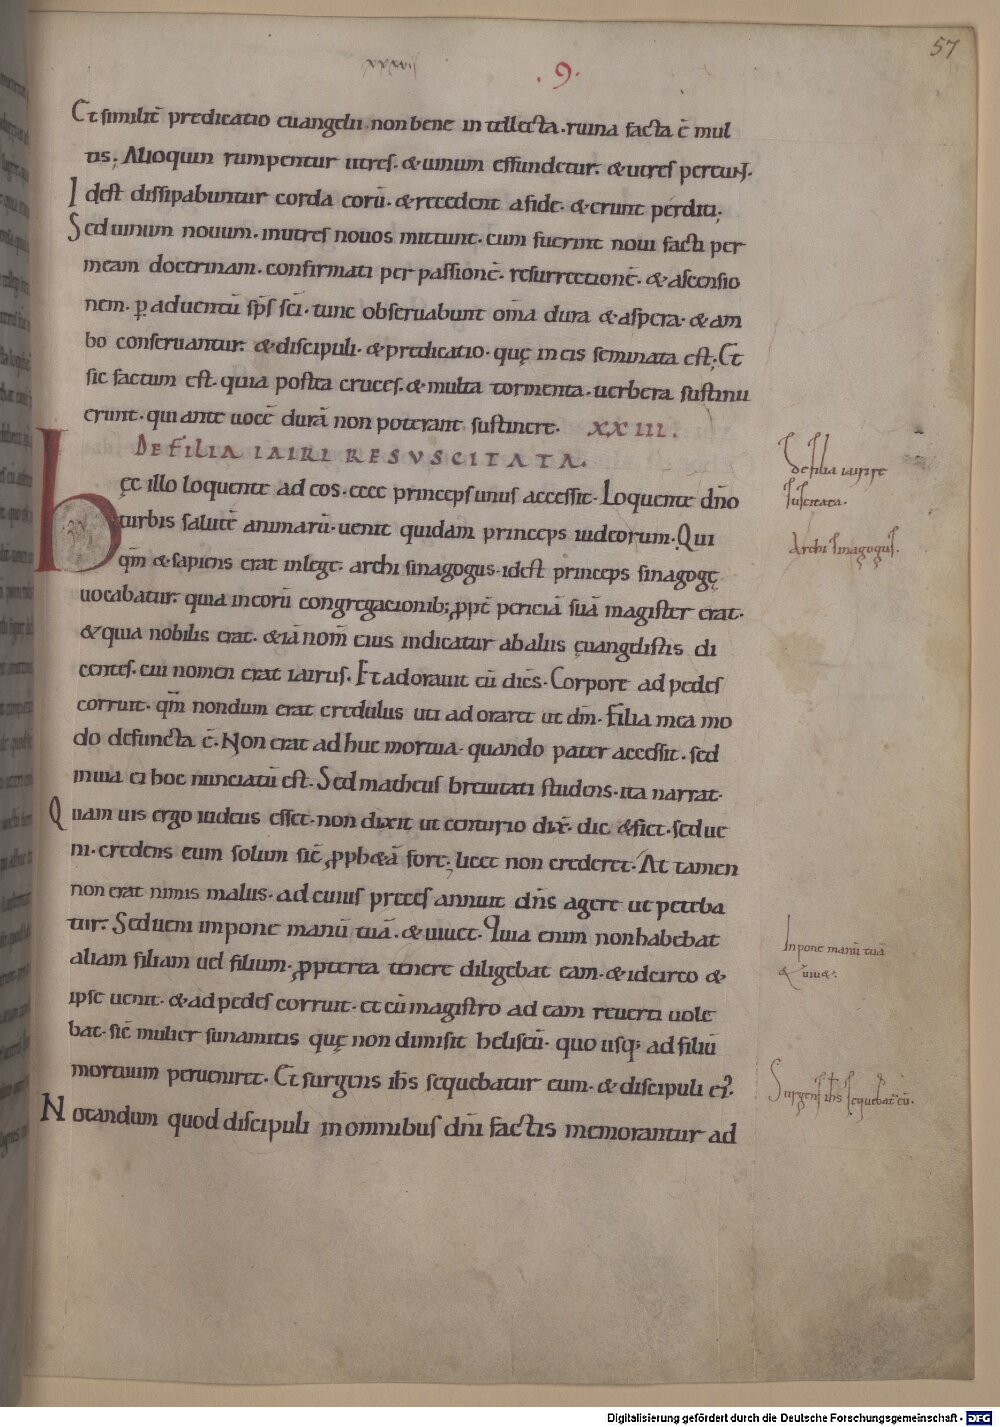 57
.9.
Et similit̄ predicatio euangelii. non bene intellecta. ruina facta ē mul
tis; Alioquin rumpentur utres. & uinum effundetur. & utres pereunt.
Idest dissipabuntur corda corū. & recedent a fide. & erunt perditi;
Sed uinum nouum. inutres nouos mittunt. cum fuerint noui facti per
meam doctrinam. confirmati per passionē. resurrectionē. & ascensio
nem. p̱ aduentū sp̄s sc̄i. tunc obseruabunt om̄a dura & aspera. & am
bo conseruantur. & discipuli. & predicatio. quę in eis seminata est; Et
sic factum est. quia postea cruces. & multa tormenta. uerbera sustinu
erunt. qui ante uocē durā non poterant sustinere. XXIII.
DE FILIA IAIRI RESVSCITATA.
Hęc illo loquente ad eos. ecce princeps unus accessit. Loquente dn̄o
turbis salutē animarū. uenit quidam princeps iudeorum. Qui
qm̄ & sapiens erat in lege. archi sinagogus. idest princeps sinagogę
uocabatur. quia in eorū congregacionib; ꝓpt̄ periciā suā magister erat.
& quia nobilis erat. & iā nom̄ eius indicatur ab aliis ęuangelistis di
centes. cui nomen erat iairus. Et adorauit eū dic̄s. Corpore ad pedes
corruit. qm̄ nondum erat credulus uti adoraret ut dm̄. Filia mea mo
do defuncta ē. Non erat adhuc mortua. quando pater accessit. sed
in uia ei hoc nunciatū est. Sed matheus breuitati studens. ita narrat.
Quam uis ergo iudeus esset. non dixit ut centurio dix̄. dic & fiet. sed ue
ni. credens eum solum sic̄ ꝓph&ā fore; licet non crederet. At tamen
non erat nimis malus. ad cuius preces annuit dn̄s agere ut peteba
tur. Sed ueni impone manū tuā. & uiuet. Quia enim non habebat
aliam filiam uel filium. ꝓpterea tenere diligebat eam. & idcirco &
ipse uenit. & ad pedes corruit. et cū magistro ad eam reuerti uole
bat. sic̄ mulier sunamitis quę non dimisit heliseū. quo usq; ad filiū
mortuum perueniret. Et surgens ih̄s sequebatur eum. & discipuli ei'.
Notandum quod discipuli in omnibus dn̄i factis memorantur ad
de filia iayri re
suscitata.
Archi sinagogus.
Inpone manū tuā
& uiu&.
Surgens ih̄s sequebat̄ eū.
Digitalisierung gefördert durch die Deutsche Forschungsgemeinschaft - DFG